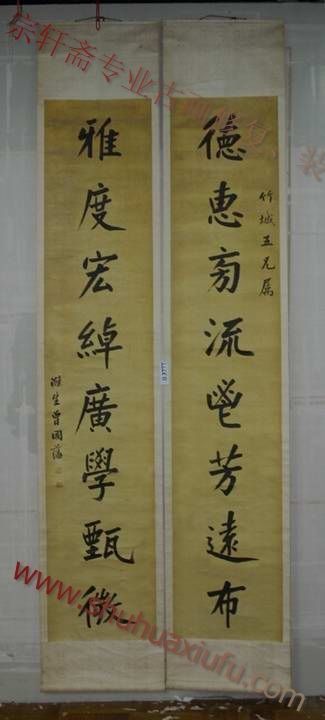 德惠旁流鬯芳遠布
竹城五兄屬
雅度宏綽廣學甄微
滌生曾國藩
宗轩斋专业古画修复、装
www.shuhuaxiufu.com